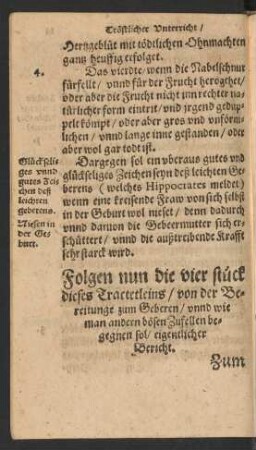 Tröstlicher Vnterricht /
Hertzgeblüt mit tödtlichen Ohnmachten
gantz heuffig erfolget.
4.
Das vierdte / wenn die Nabelschnur
fürfellt / vnnd für der Frucht herogehet /
oder aber die Frucht nicht inn rechter na-
türlicher form eintrit / vnd jrgend gedup-
pelt kömpt / oder aber gros vnd vnförm-
lichen / vnnd lange inne gestanden / oder
aber wol gar todt ist.
Glückseli-
ges vnnd
gutes Zei-
chen deß
leichten
geberens.
Niesen in
der Ge-
burt.
Dargegen sol ein vberaus gutes vnd
glückseliges Zeichen seyn deß leichten Ge-
berens (welches Hippocrates meldet)
wenn eine kreisende Fraw von sich selbst
in der Geburt wol nieset / denn dadurch
vnnd dauon die Gebeermutter sich er-
schüttert / vnnd die außtreibende Krafft
sehr starck wird.
Folgen nun die vier stück
dieses Tractetleins / von der Be-
reitunge zum Geberen / vnnd wie
man andern bösen Zufellen be-
gegnen sol / eigentlicher
Bericht.
Zum